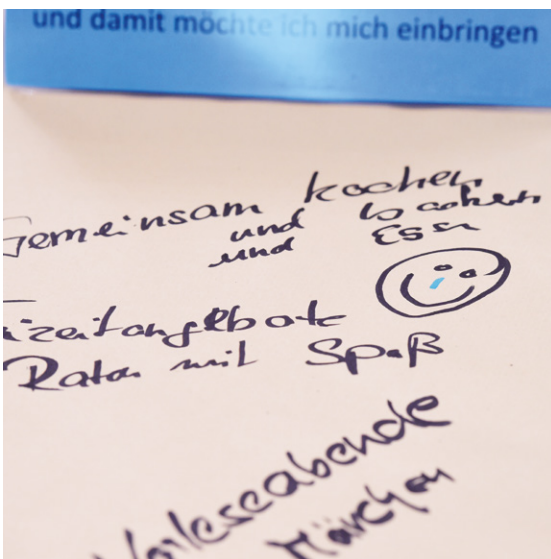 und damit möchte ich mich einbringen
Gemeinsam kochen
und backen
und Essen
Freizeitangebote
Raten mit Spaß
Vorleseabende
Märchen